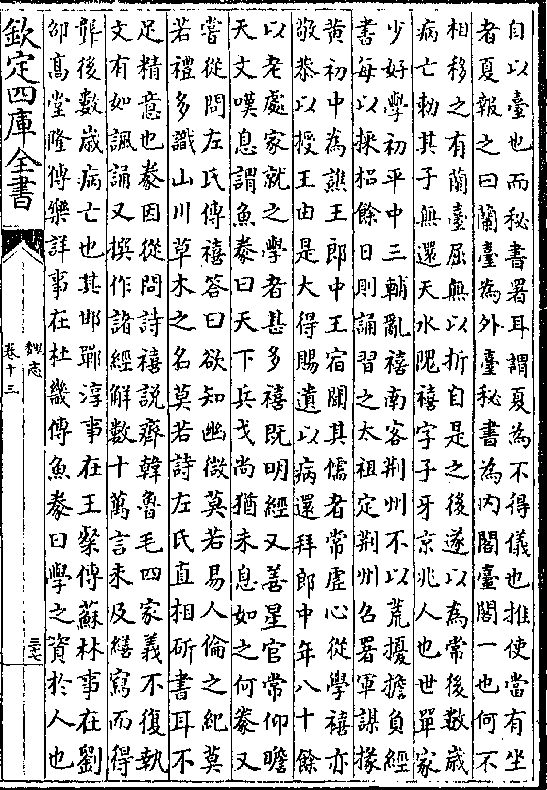 自以臺也而秘書署耳謂夏為不得儀也推使當有坐
者夏報之曰蘭臺為外臺秘書為內閣臺閣一也何不
相移之有蘭臺屈無以折自是之後遂以為常後數歲
病亡勑其子無還天水隗禧字子牙京兆人也世單家
少好學初平中三輔亂禧南客荆州不以荒擾擔負經
書每以採稆餘日則誦習之太祖定荆州召署軍謀掾
黄初中為譙王郎中王宿聞其儒者常虚心從學禧亦
敬恭以授王由是大得賜遺以病還拜郎中年八十餘
以老處家就之學者甚多禧既明經又善星官常仰瞻
天文嘆息謂魚豢曰天下兵戈尚猶未息如之何豢又
嘗從問左氏傳禧答曰欲知幽微莫若易人倫之紀莫
若禮多識山川草木之名莫若詩左氏直相斫書耳不
足精意也豢因從問詩禧說齊韓魯毛四家義不復執
文有如諷誦又撰作諸經解數十萬言未及繕寫而得
聾後數歲病亡也其邯鄲淳事在王粲傳蘇林事在劉
邵高堂隆傳樂詳事在杜畿傳魚豢曰學之資於人也
欽定四庫全書
魏志
卷十三
三七